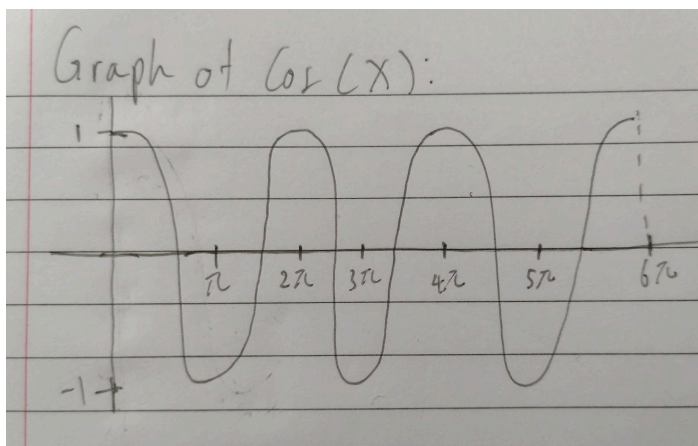 Graph of Cos(X):
1
π 2π 3π 4π 5π 6π
-1